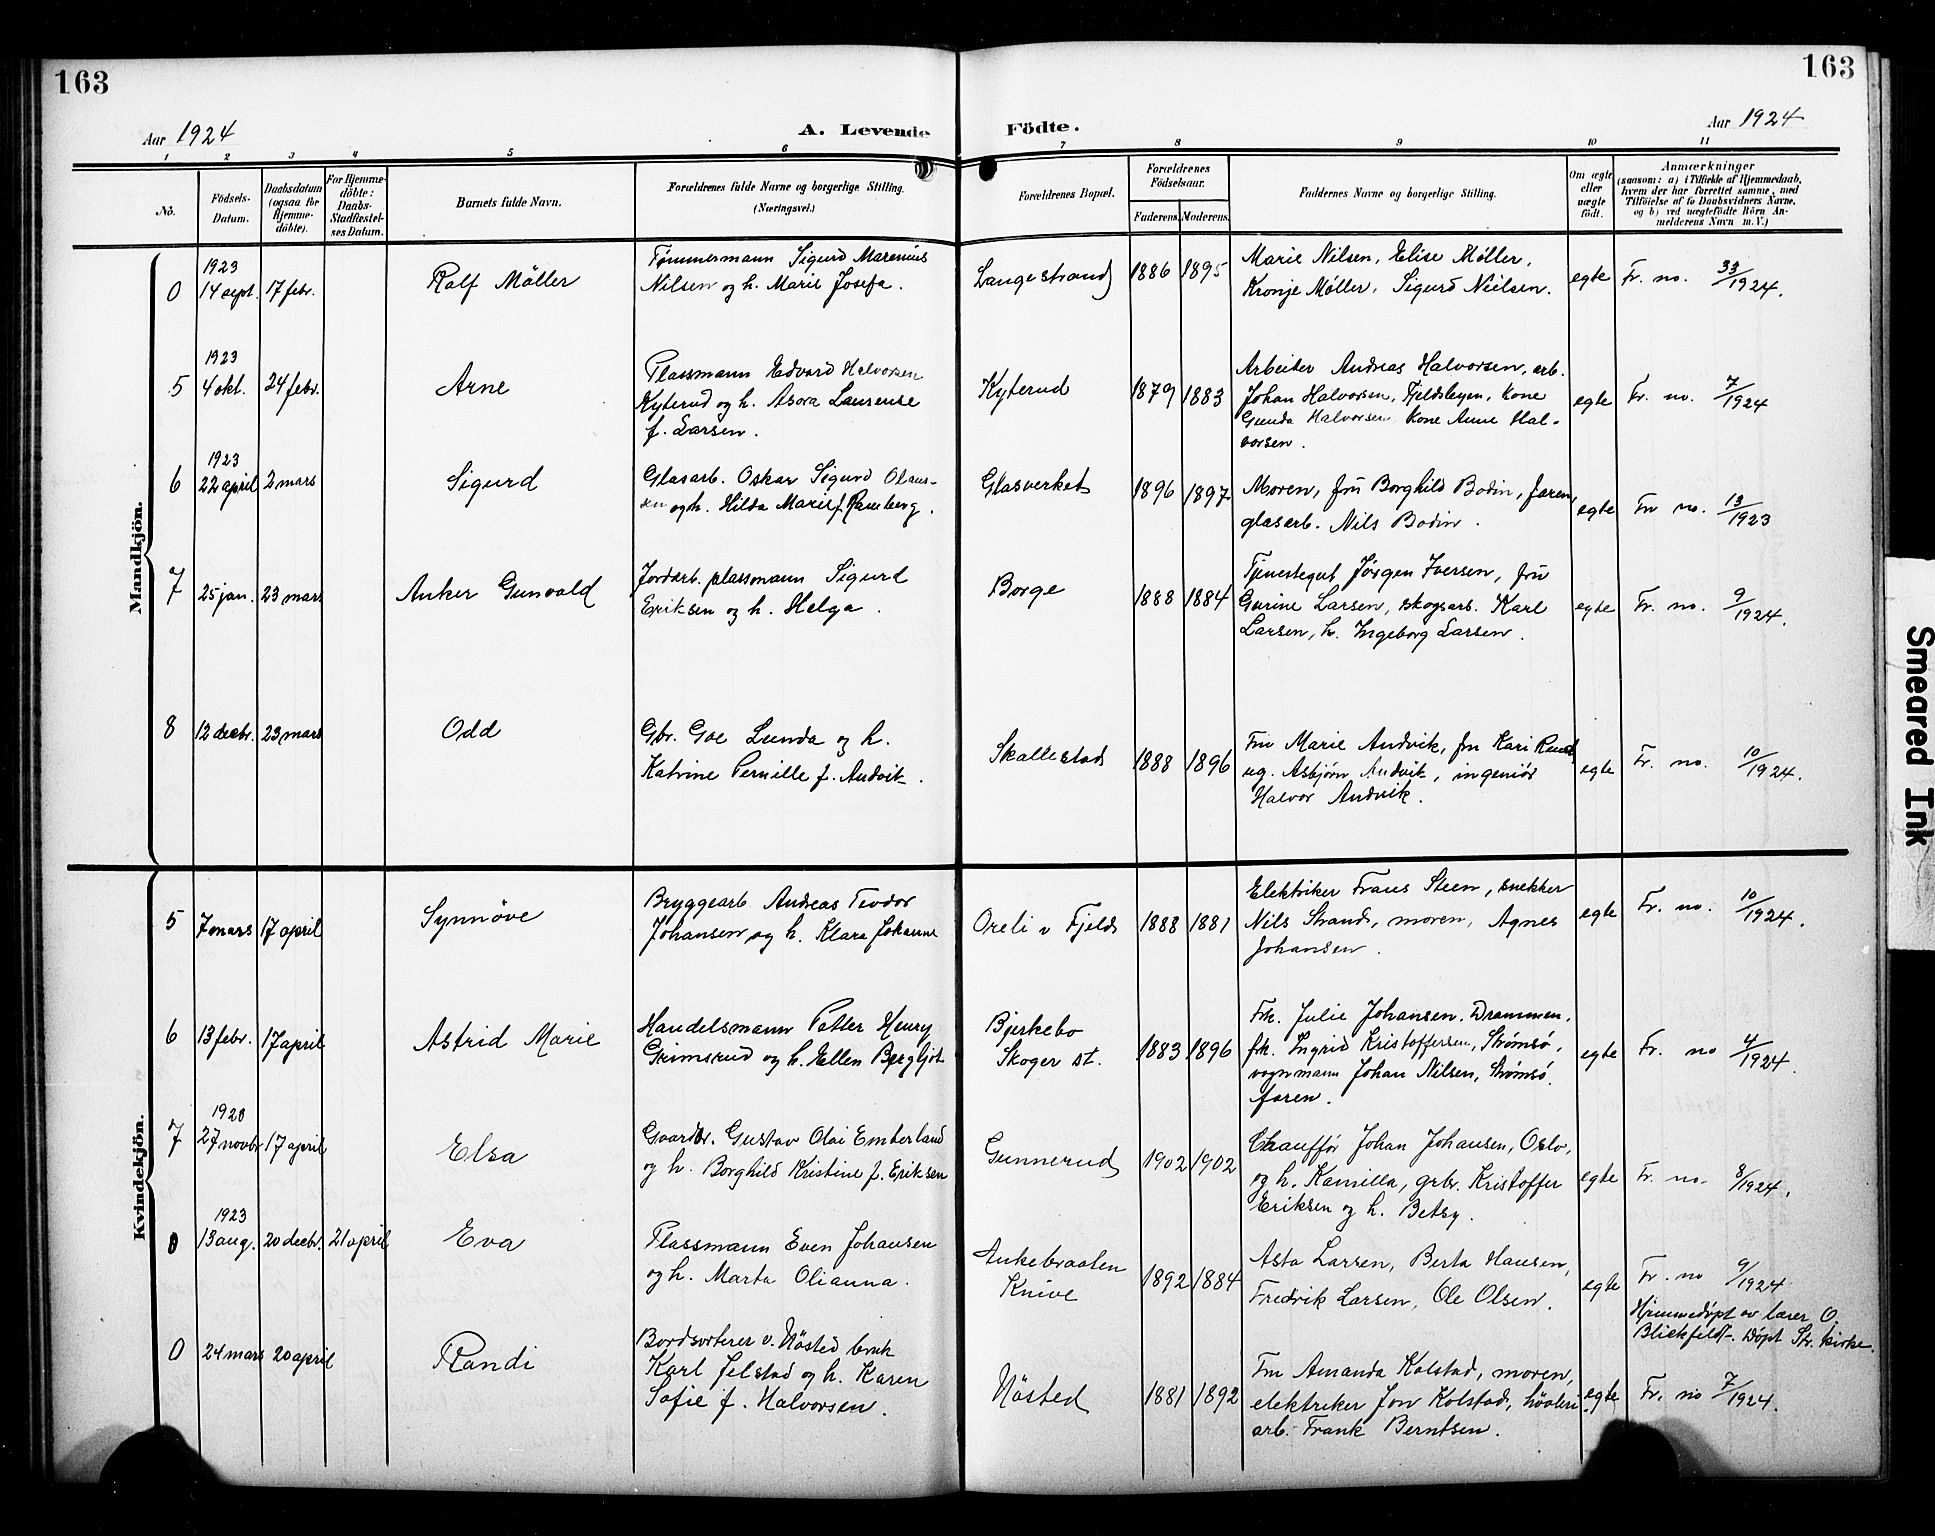 163
163
Aar 1924
A. Levende Födte.
Aar 1924
1 2 3 4 5 6 7 8 9 10 11
No.
Födsels-Datum.
Daabsdatum (ogsaa for Hjemme-döbte).
For Hjemme-döbte: Daabs-Stadfæstel-ses Datum.
Barnets fulde Navn.
Forældrenes fulde Navne og borgerlige Stilling.
(Næringsvei.)
Forældrenes Bopæl.
Forældrenes Födselsaar.
Faderens. Moderens.
Faddernes Navne og borgerlige Stilling.
Om ægte eller uægte født.
Anmærkninger
(saasom: a) i Tilfælde af Hjemmedaab,
hvem der har forrettet samme, med
Tilföielse af to Daabsvidners Navne,
og b) ved uægtefödte Börn An-
melderens Navn m. V.)
Mandkjön.
0 1923 14 sept. 17 febr. Ralf Möller
Tømmermann Sigurd Marenius
Nilsen og h. Marie Josefa.
Langestrand 1886 1895
Marie Nilsen, Elise Møller,
Kronje Møller, Sigurd Nielsen.
egte Fr. no. 33/1924.
5 1923 4 okt. 24 febr. Arne
Plassmann Edvard Halvorsen
Kyterud og h. Asora Laurense
f. Larsen.
Kyterud 1879 1883
Arbeider Andreas Halvorsen, arb.
Johan Halvorsen, Fjeldsbyen, Kone
Gunda Halvorsen Kone Anne Hal-
vorsen.
egte Fr. no. 7/1924
6 1923 22 april 2 mars Sigurd
Glasarb. Oskar Sigurd Olaus-
sen og h. Hilda Marie f. Ramberg.
Glasverket 1896 1897
Moren, fru Borghild Bodin, faren,
glasarb. Nils Bodin.
egte Fr no. 13/1923
7 25 jan. 23 mars Anker Gunvald
Jordarb. plassmann Sigurd
Eriksen og h. Helga.
Borge 1888 1884
Tjenestegut Jørgen Iversen, fru
Gurine Larsen, skogsarb. Karl
Larsen, h. Ingeborg Larsen.
egte Fr. no. 9/1924.
8 12 decbr. 23 mars Odd
Gbr. Goe Lunda og h.
Katrine Pernille f. Andvik.
Skallestad 1888 1896
Fru Marie Andvik, fru Kari
ug. Asbjørn Andvik, ingeniör
Halvor Andvik.
egte Fr. no. 10/1924.
Kvindekjön.
5 7 mars 17 april Synnöve
Bryggearb Andreas Teodor
Johansen og h. Klara Johanne
Oreli v Fjeld 1888 1881
Elektriker Frans Steen, snekker
Nils Strand, moren, Agnes
Johansen.
egte Fr. no. 10/1924.
6 13 febr. 17 april Astrid Marie
Handelsmann Petter Henry
Grimsrud og h. Ellen Bergljot
Bjerkebo
Skoger st. 1883 1896
Frk. Julie Johansen. Drammen,
frk. Ingrid Kristoffersen, Strømsø,
vognmann Johan Nilsen, Strömsö,
faren.
egte Fr. no 4/1924.
7 1923 27 novbr 17 april Elsa
Gaardbr. Gustav Olai Emberland
og h. Borghild Kristine f. Eriksen
Gunnerud 1902 1902
Chauffør Johan Johansen, Oslo,
og h. Kamilla, grbr. Kristoffer
Eriksen og h. Betsy.
egte Fr. no. 8/1924.
0 1923 13 aug. 20 decbr. 21 april Eva
Plassmann Even Johansen
og h. Marta Olianna.
Ankebraaten
Knive 1892 1884
Asta Larsen, Berta Hansen,
Fredrik Larsen, Ole Olsen.
egte Fr. no 9/1924
Hjemmedøpt av lærer O.
Blickfeldt. Døpt Str. kirke.
0 24 mars 20 april Randi
Bordsorterer v. Nösted bruk
Karl Jelstad og h. Karen
Sofie f. Halvorsen.
Nösted 1881 1892
Fru Amanda Kolstad, moren,
elektriker Jon Kolstad, höuleri
arb. Frank Berntsen.
egte Fr. no 7/1924.
Smeared Ink